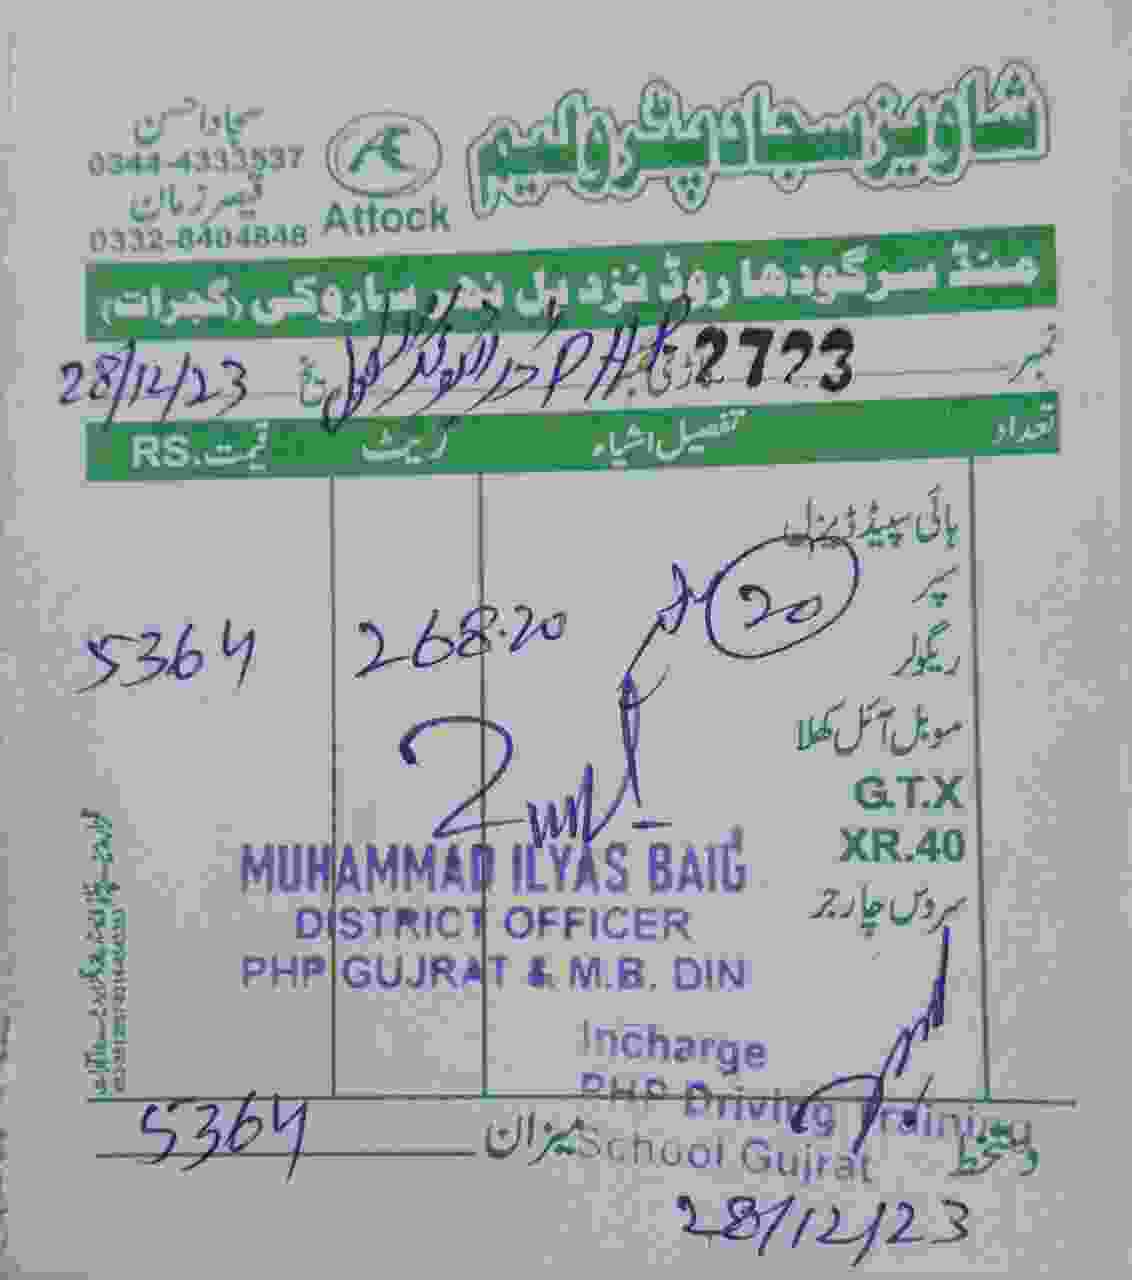 شاویز سجاد پٹرولیم
Attock
سجاد احسن
0344-4333537
قیصر زمان
0332-8404848
منڈ سرگودھا روڈ نزد پل نہر ساروکی (گجرات)
نمبر 2723 PHP 28/12/23
تعداد تفصیل اشیاء ریٹ قیمت .RS
ہائی سپیڈ ڈیزل
سپر 20
ریگولر 268.20 5364
موبل آئل کھلا
G.T.X
XR.40
سروس چارجز
MUHAMMAD ILYAS BAIG
DISTRICT OFFICER
PHP GUJRAT & M.B. DIN
Incharge
PHP Driving Training
School Gujrat
دستخط
میزان 5364
28/12/23